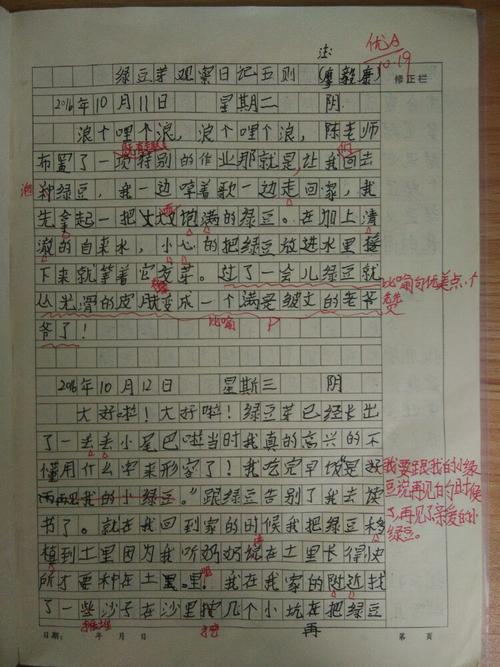 优A
10.19
绿豆芽观察日记五则 (廖毅康)
修正栏
2016年10月11日 星期二 阴
浪个哩个浪，浪个哩个浪，陈老师
布置了一项特别的作业那就是，让我回去
们
泡
种绿豆，我一边哼着歌一边走回家，我
先拿起一把大大饱满的绿豆。在加上清
澈的自来水，小心的把绿豆放进水里接
下来就等着它发芽。过了一会儿绿豆就
比喻句优美点，个赞
从光滑的皮肤变成一个满是皱文的老爷
比喻
爷了！
2016年10月12日 星斯三 阴
大好啦！大好啦！绿豆芽已经长出
了一去去小尾巴啦当时我真的高兴的不
懂用什么字来形字了！我吃完早饭"是
我要跟我的小绿豆说再见的时候了，再见了亲爱的小绿豆。
再见我的小绿豆。"跟绿豆告别了我去读
书了。就在我回到家的时候我把绿豆移
植到土里因为我听奶奶说在土里长得快
所才要种在土里。里！我在我家的附近找
了一些沙子在沙里按几个小坑在把绿豆
再
日期： 年 月 日 第 页